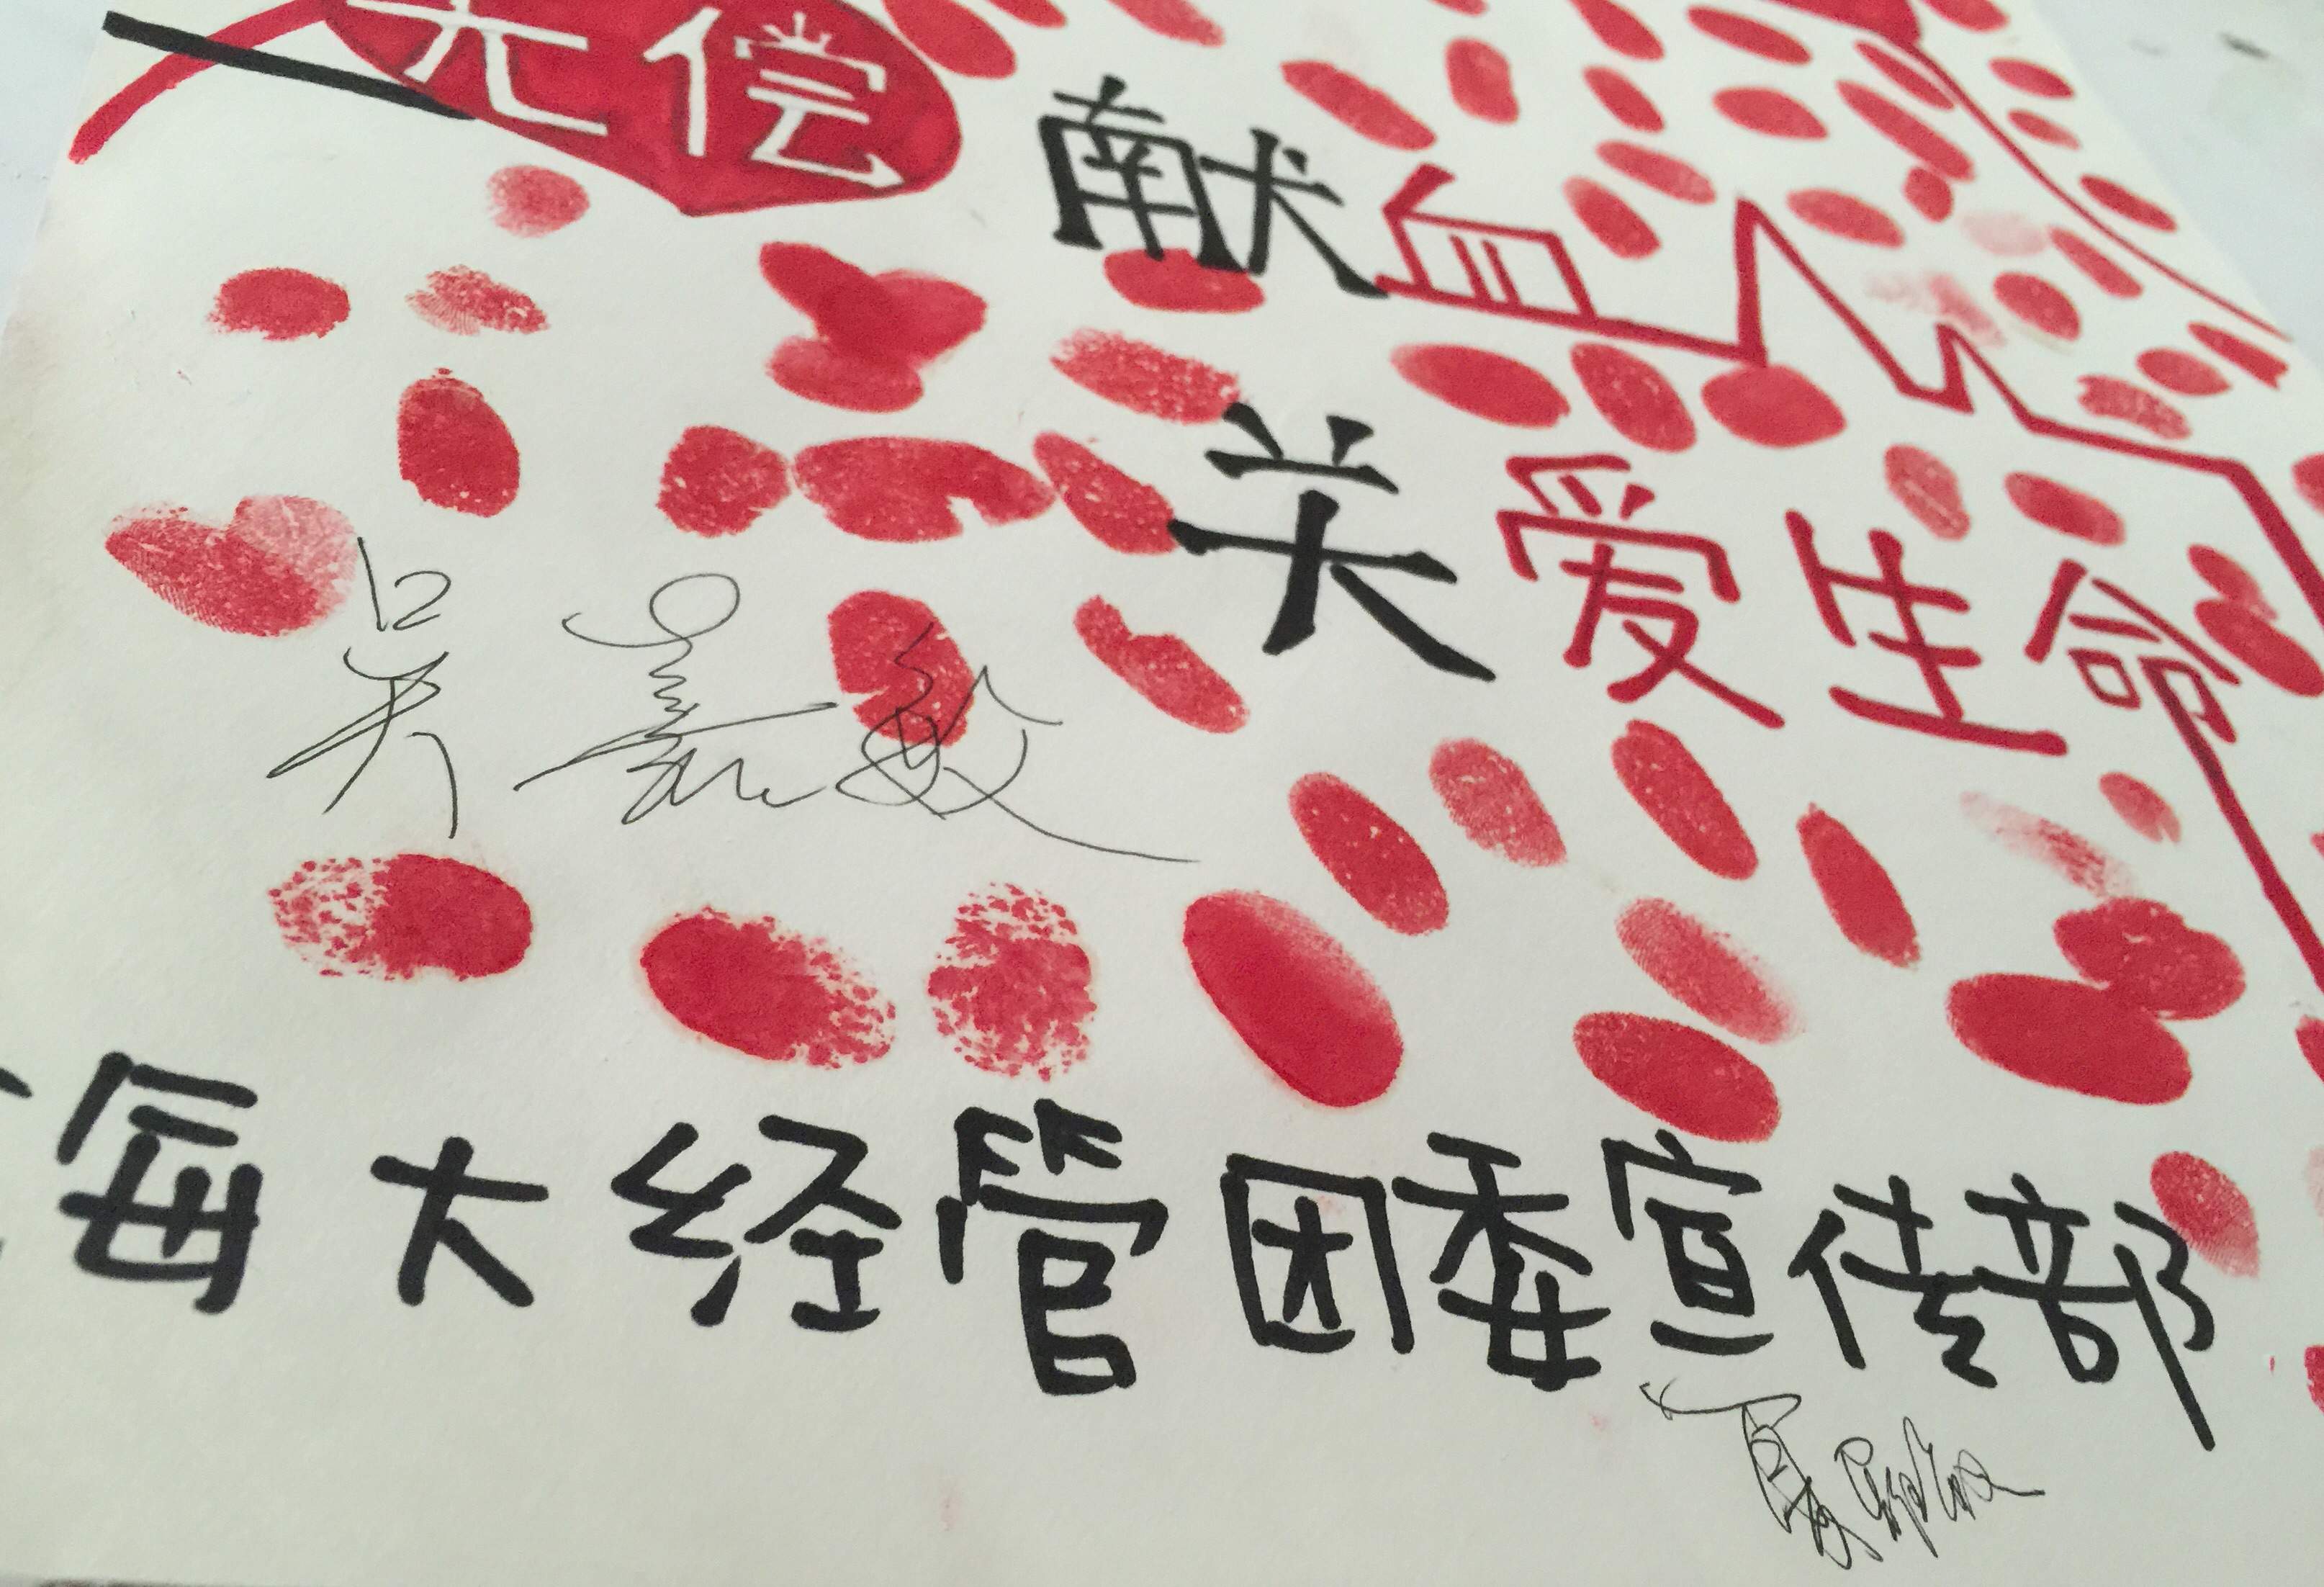 无偿
献血
关爱生命
吴嘉敏
海大经管团委宣传部